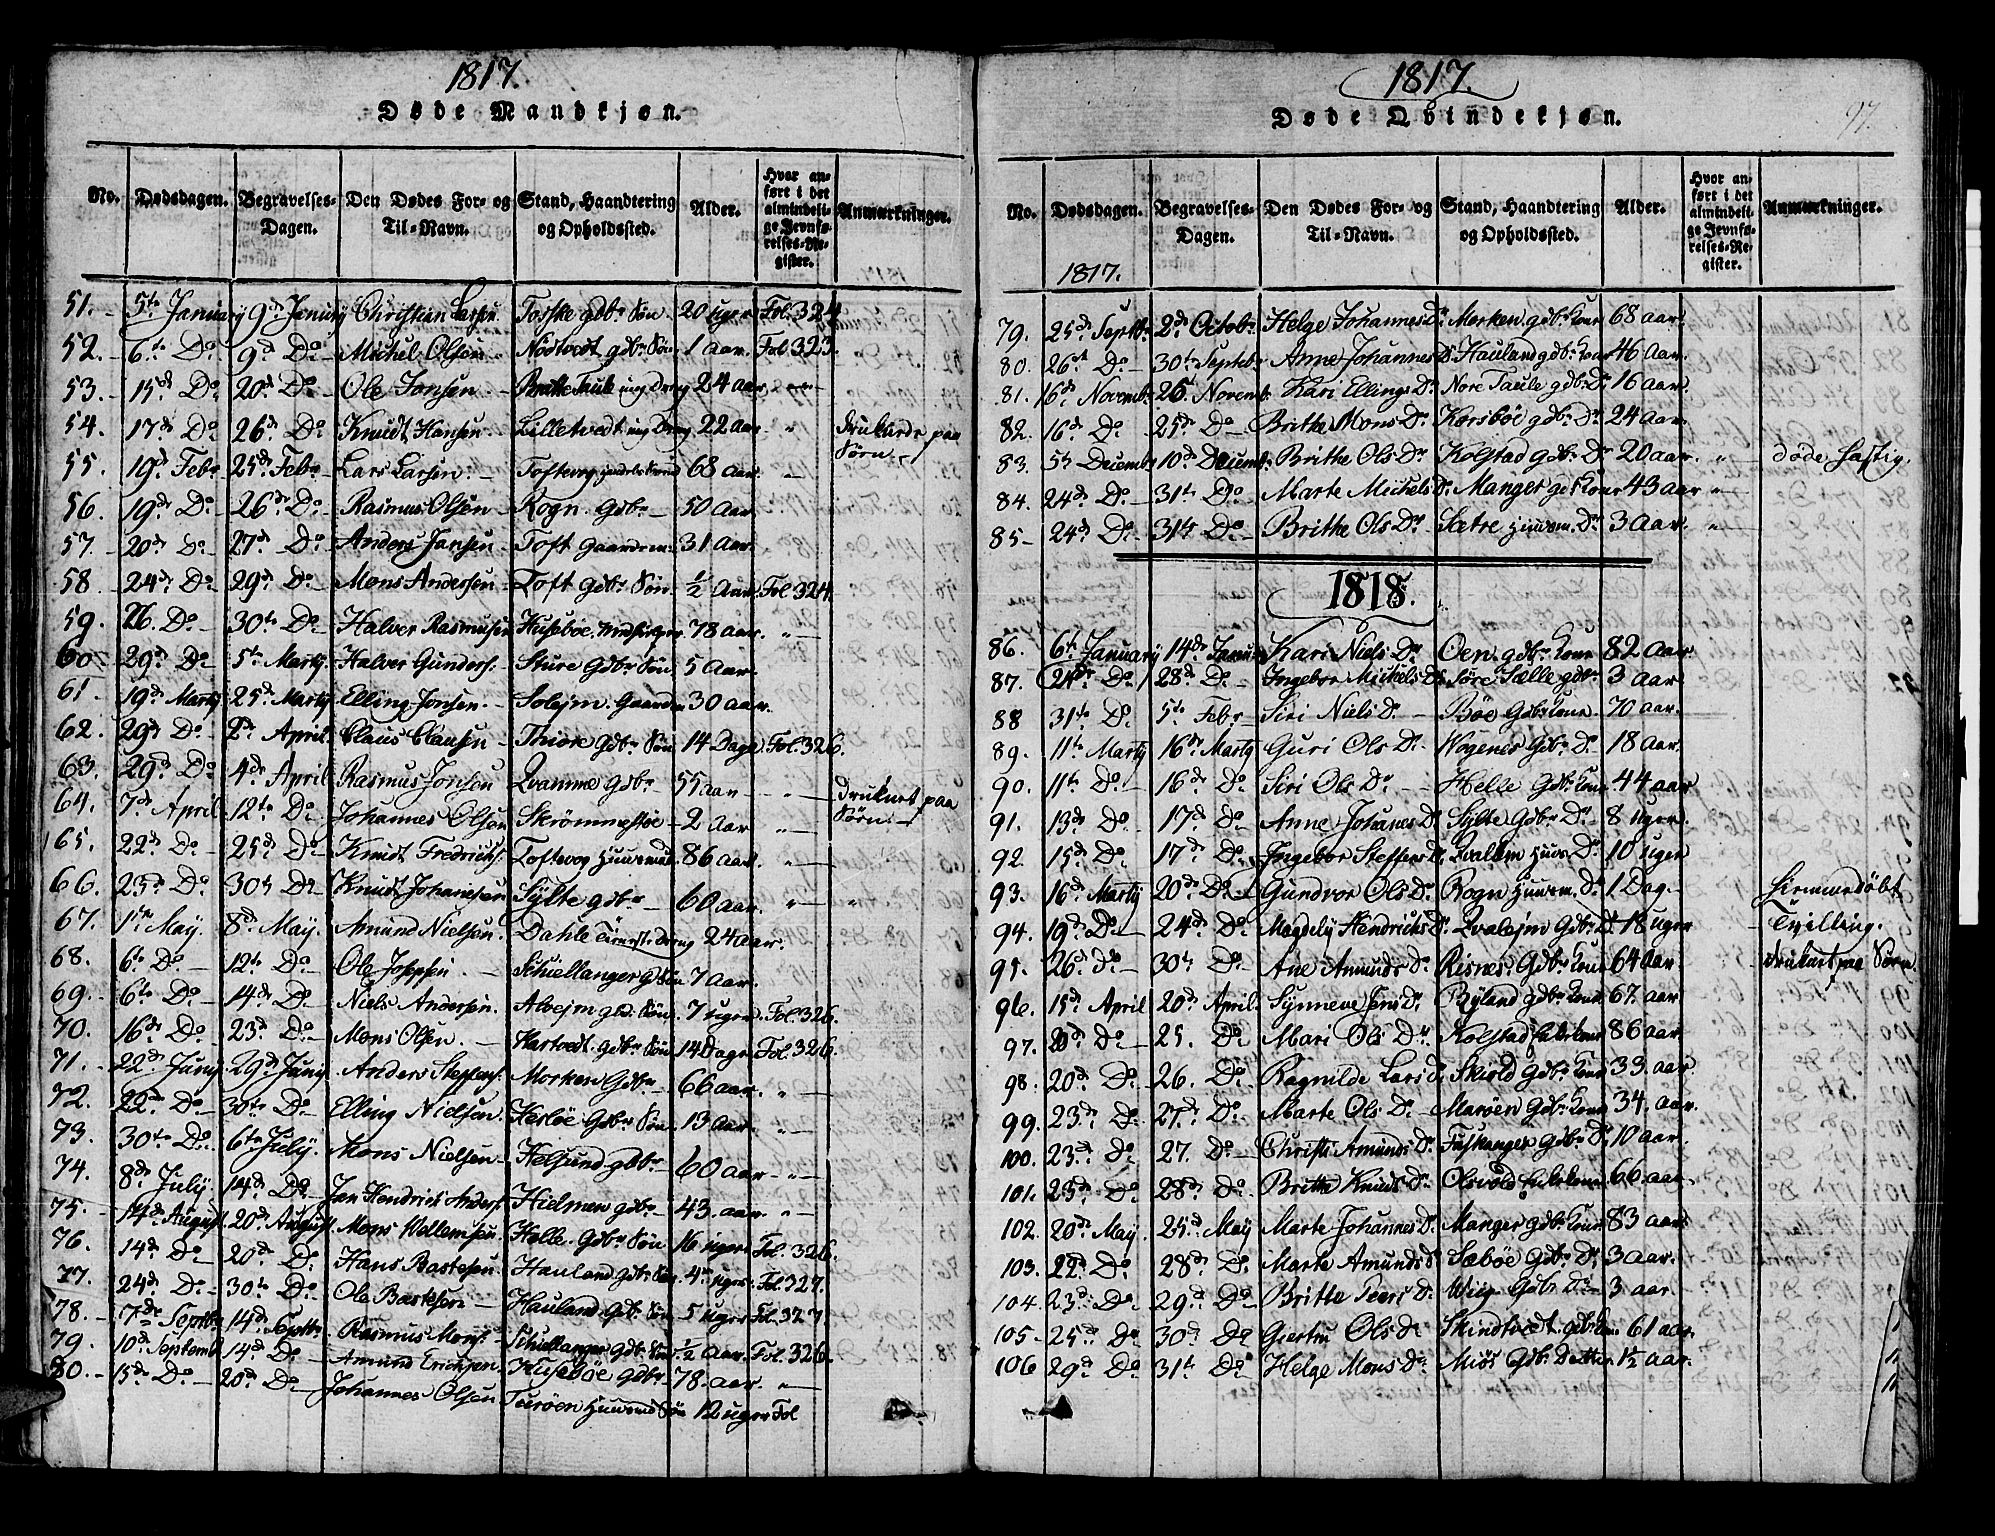 1817.
Døde Mandkjøn.
No. Dødsdagen. Begravelses-Dagen. Den Dødes For- og Til-Navn. Stand, Haandtering og Opholdssted. Alder. Hvor anført i det almindelige Jevnførelses-Register. Anmærkninger.
51. 5te January 9de January Christian Larsen Toske gdbr Søn 20 uger Fol. 324
52. 6te Do 9d Do Michel Olsen Nødtvedt gdbr Søn 1 aar. Fol 323.
53. 15de Do 20de Do Ole Jonsen 24 aar
54. 17de Do 26de Do Knudt Hansen Lilletvedt ung Dreng 22 aar " Druknede paa Søen
55. 19d Febr 25de Febr Lars Larsen. Toftevog 68 aar "
56. 19de Do 26de Do Rasmus Olsen Rogn. Gdbr 50 aar
57. 20de Do 27de Do Anders Jansen Toft Gaardm 31 aar
58 24de Do 29d Do Mons Andersen Toft Gdbr Søn ½ Aar. Fol 324.
59. 26. Do 30te Do Halver Rasmusen Husebøe 78 aar. "
60 29de Do 5te Marty Halver Gunders. Sture Gdbr Søn 5 aar
61. 19d Marty 25de Marty Elling Jonsen. Solejm. Gaardm 30 aar
62. 29d Do 2de April Claus Clausen Thiore Gdbr Søn 14 Dage Fol. 326.
63. 29d Do 4de April Rasmus Jonsen Qvamme Gdbr 55 aar "
64. 7de April 12te Do Johannes Olsen Skrømmestøe 2 aar " Druknet paa Søen.
65. 22de Do 25de Do Knudt Fredrichs. Toftevog Huusmd 86 aar "
66. 25de Do 30te Do Knudt Johannesen Sylte gdbr 60 aar. " "
67. 1ste May. 8de May. Amund Nielsen. Dahle Dreng 24 aar.
68. 6te Do 12te Do Ole Josepsen Skiellanger G. Søn 7 aar.
69. 6te Do 14de Do Niels Andersen. Alvejm gdb. Søn. 7 uger. Fol. 326.
70. 16de Do 23d Do Mons Olsen. Hartvedt. Gdbr Søn 14 Dage Fol. 326.
71. 22de Juny 29d Juny Anders Steffens. Morken Gdbr 66 aar.
72. 22de Do 30te Do Elling Nielsen. Herløe Gdbr Søn. 13 aar. "
73. 30te Do 6te July. Mons Nielsen Helsund gdbr 60 aar "
74. 8de July. 14d Do Jan Hendrich Anders. Hielmen gdbr 43. aar. "
75. 14d August. 20d August. Mons Willemsen. Helle. Gdbr Søn 16 uger Fol. 326.
76. 14d Do 20d. D. Hans Bastesen. Hauland Gdbr Søn. 4 uger Fol 327.
77. 24de Do 30te Do Ole Bastesen Hauland. Gdb. Søn 5 uger Fol. 327.
78. 7de Septbr 14d. Septbr. Rasmus Mons. Skiellanger Gdb. Søn ½ Aar. Fol. 326.
79. 10d. Septemb. 14d Do Amund Erichsen Husebøe Gdbr 78. aar "
80. 15d Do 20d Do Johannes Olsen Turøen Huusmd Søn 12 uger Fol
1817.
97.
Døde Qvindekjøn.
No. Dødsdagen. Begravelses-Dagen. Den Dødes For- og Til-Navn. Stand, Haandtering og Opholdssted. Alder. Hvor anført i det almindelige Jevnførelses-Register. Anmærkninger.
1817.
79. 25de Septbr 2de Octobr Helge Johannes Dr Morken. gdbr Kone 68 aar.
80. 26de Do 30te Septebr Anne Johannes D. Hauland gdbr Kone 46 Aar.
81. 16de Novembr 25. Novemb. Kari Ellings Dr Nore Taule gdbr Dr 16 aar.
82. 16de Do 25de Do Brithe Mons Dr. Korsbøe gdbr Dr 24 aar
83. 5te Decembr 10de Decembr Brithe Ols Dr Kolstad gdbr Dr 20 aar. " døde hastig.
84. 24de Do 31te Do Marte Mickels D. Manger gd: Kone 43 aar "
85 24de Do 31te Do Brithe Ols Dr Sætre Huusm. Dr 3 aar. "
1818.
86. 6te January 14de Januar Kari Niels Dr Oen. gdbr Kone 82 aar
87. 24de Do 28de Do Ingebor Mickels D. Søre Sælle gdbr 3 aar
88 31te Do 5te Febr Siri Niels Dr Bøe Gdbr Kone 70 aar
89. 11te Marty 16de Marty Guri Ols Dr. Wogenes Gdbr Dr. 18 aar
90. 11te Do 16de Do Siri Ols Dr Helle Gdbr Kone 44 aar
91. 13de Do 17de Do Anne Johanes D. Sylte Gdbr Dr 8 uger.
92. 15de Do 17de Do Ingebor Steffens D. Qvalem Huus Dr. 10 uger
93. 16de Marty 20de Do Gundvor Ols Dr. Rogn Huusm. Dr 1 Dag. Hiemmedøbt
94. 19de Do 24de Do Magdely Hendrichs D. Qvalejm Gdbr Dr 18 uger Tvilling.
95. 26de Do 30te Do Ane Amunds Dr. Risnes. Gdbr Kone 64 aar druknet paa Søen
96. 15de April 20de April. Synneve Jens Dr. Byland gdbr Kone 67. aar
97. 20de Do 25. Do Mari Ols Dr Kolstad 86 aar
98. 20de Do 26. Do Ragnilde Lars Dr Skiold Gdbr Kone 33 aar
99. 23de Do 27de Do Marte Ols Dr Marøen Gdbr Kone 34. aar.
100. 23de Do 27. Do Christi Amunds Dr. Foskanger Gdbr Dr 10 aar.
101. 25de Do 28de Do Brithe Knuds Dr. Olsvold 66 aar
102. 20de May. 25de May Marte Johannes Dr. Manger gdbr Kone 83 aar.
103. 22de Do 28de Do Marte Amunds D. Sæbøe Gdbr Dr 3 aar.
104. 23de Do 29de Do Brithe Peers Dr Wiig Gdbr Dr 3 aar
105 25de Do 30de Do Giertru Ols Dr Skindtvedt gdb. Kone 61 aar
106 29de Do 31te Do Helge Mons Dr Miøs Gdbr Datter 1½ aar.